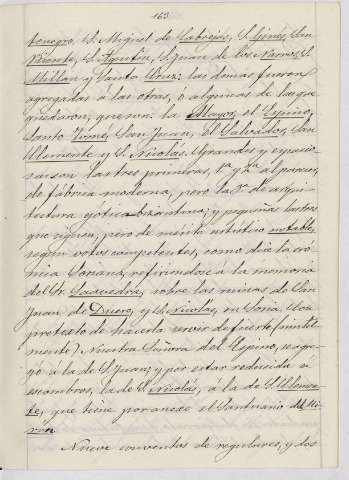 163
tenegro, S. Miguel de Cabrejas, S. Ginés, San
Vicente, S. Agustin, S. Juan de los Navarros, S.
Millan y Santa Cruz: las demas fueron
agregadas á las otras, ó algunas de las que
quedaron, que son: la Mayor, el Espino,
Santo Tomé, San Juan, el Salvador, San
Clemente y S. Nicolás. Grandes y espacio-
sas son las tres primeras, 1ª y 2ª al parecer,
de fábrica moderna, pero la 3ª de arqui-
tectura gótica bizantina; y pequeñas las tres
que siguen, pero de mérito artístico notable,
segun votos competentes, como dice la cró-
nica Soriana, refiriéndose á la memoria
del Sr. Saavedra, sobre las ruinas de San
Juan de Duero, y S. Nicolás, en Soria. (Con
pretesto de hacerla servir de fuerte (inutil-
mente) Nuestra Señora del Espino, se agre-
gó á la de S. Juan; y por estar reducida á
escombros, la de S. Nicolás, á la de S. Clemen-
te, que tiene por anexo el Santuario del Mi-
ron.
Nueve conventos de regulares, y dos